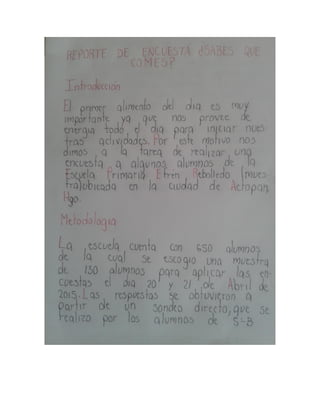 REPORTE DE ENCUESTA ¿SABES QUE
COMES?
Introducción
El primer alimento del dia es muy
importante ya que nos provee de
energia todo el dia para iniciar nues-
tras actividades. Por este motivo nos
dimos a la tarea de realizar una
encuesta a algunos alumnos de la
Escuela Primaria Efren Rebolledo (mues-
tra)ubicada en la ciudad de Actopan
Hgo.
Metodologia
La escuela cuenta con 650 alumnos
de la cual se escogio una muestra
de 130 alumnos para aplicar las en-
cuestas el dia 20 y 21 de Abril de
2015. Las respuestas se obtuvieron a
partir de un sondeo directo, que se
realizo por los alumnos de 5-B